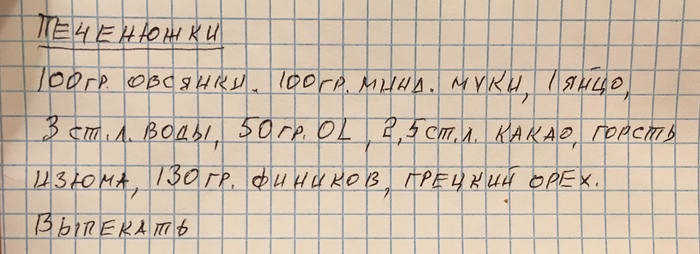 ПЕЧЕНЮЖКИ
100ГР. ОВСЯНКИ. 100ГР. МИНД. МУКИ, 1 ЯЙЦО,
3 СТ.Л. ВОДЫ, 50ГР. OL, 2,5 СТ.Л. КАКАО, ГОРСТЬ
ИЗЮМА, 130ГР. ФИНИКОВ, ГРЕЦКИЙ ОРЕХ.
ВЫПЕКАТЬ